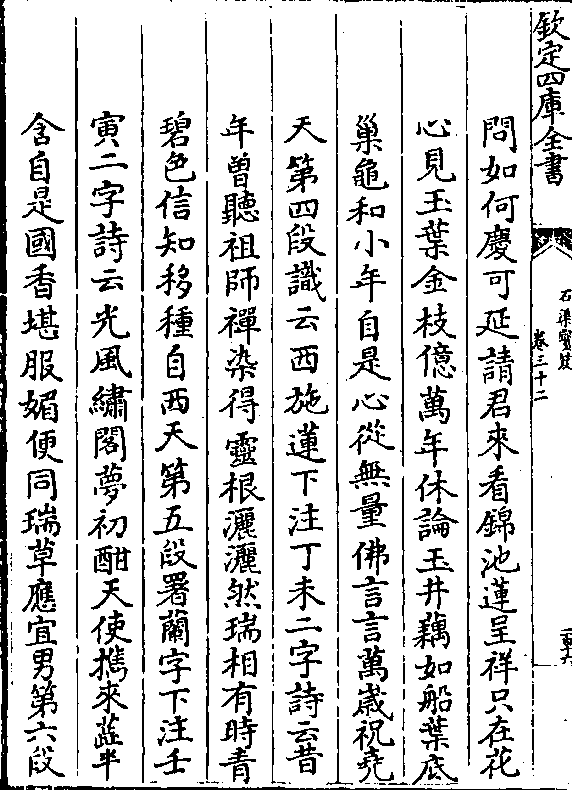 欽定四庫全書
石渠寶笈
卷三十二
問如何慶可延請君來看錦池蓮呈祥只在花
心見玉葉金枝億萬年休論玉井藕如船葉底
巢龜和小年自是心從無量佛言言萬歲祝堯
天第四段識云西施蓮下注丁未二字詩云昔
年曽聽祖師禪染得靈根灑灑然瑞相有時青
碧色信知移種自西天第五段署蘭字下注壬
寅二字詩云光風繡閣夢初酣天使攜來蕋半
含自是國香堪服媚便同瑞草應宜男第六段